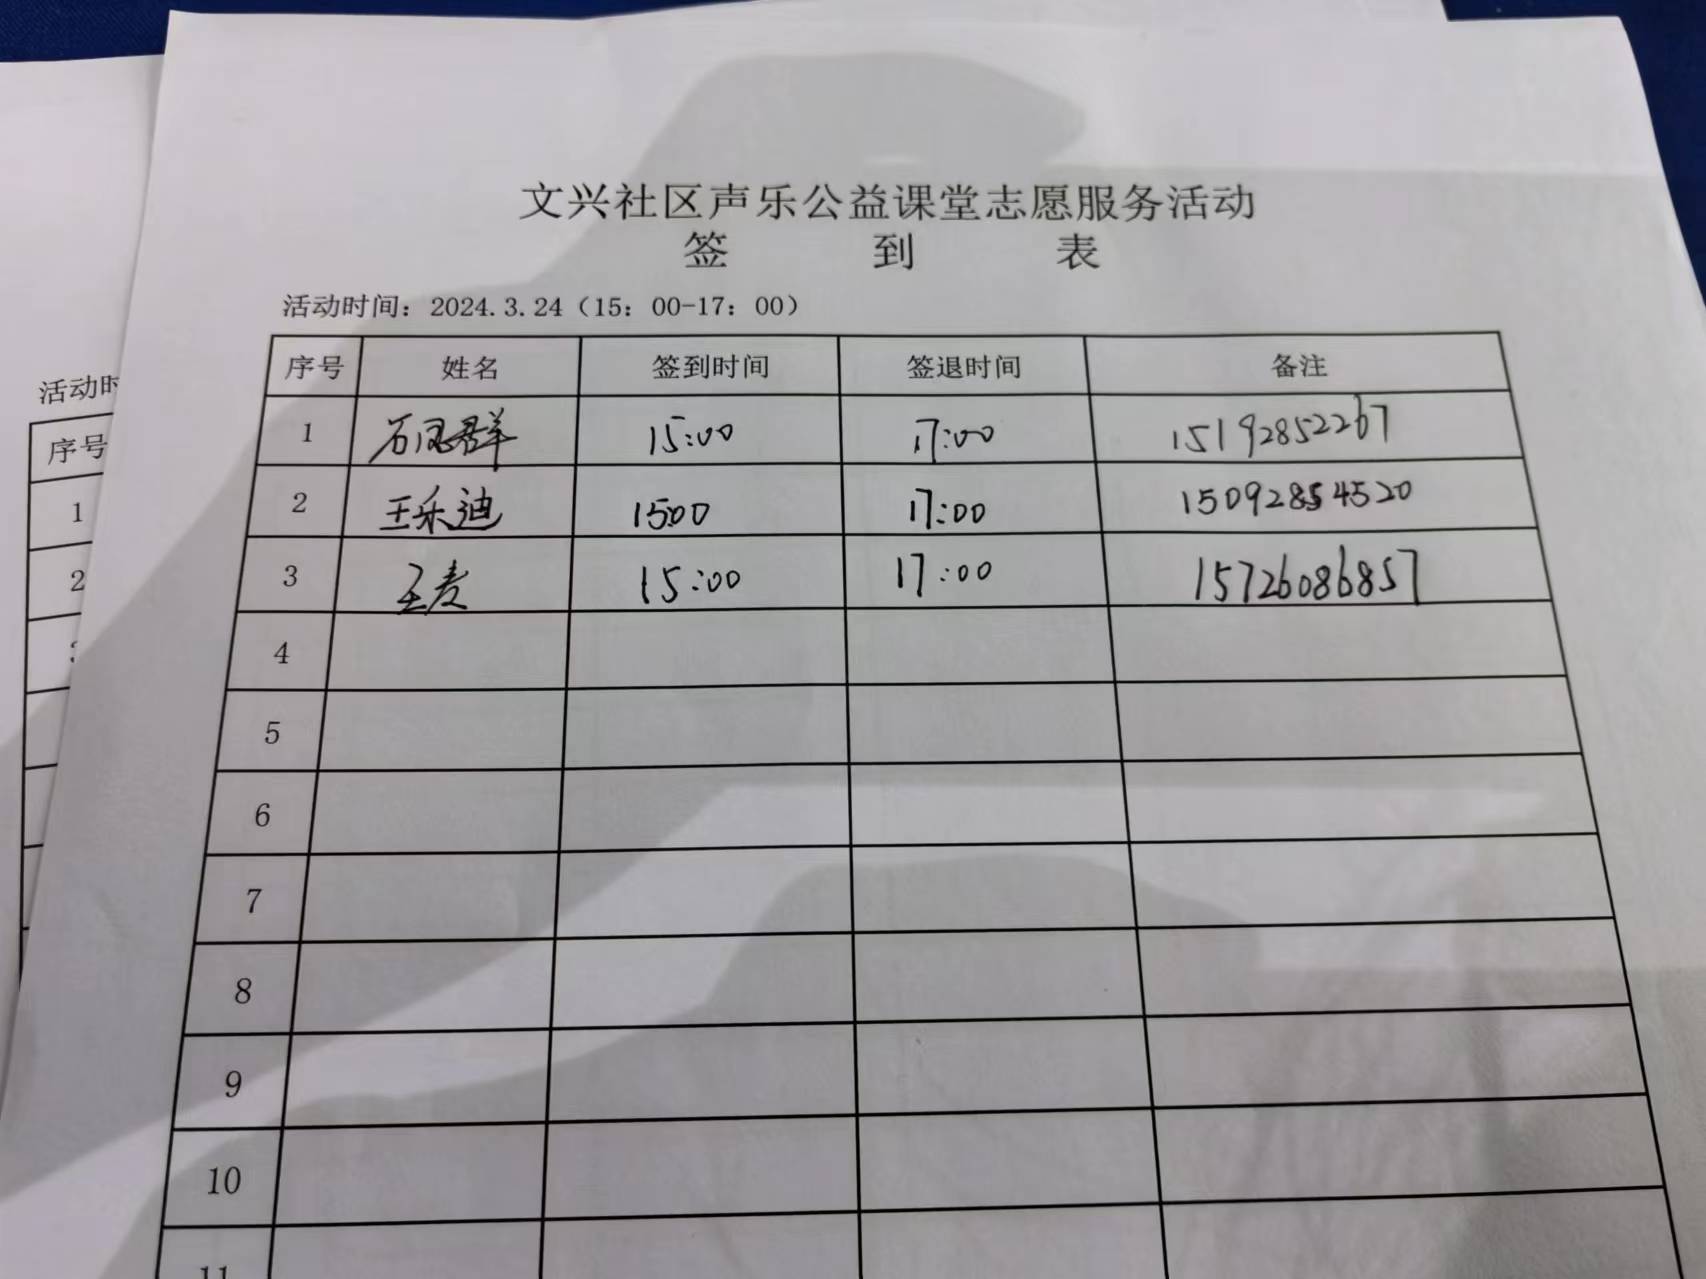 文兴社区声乐公益课堂志愿服务活动
签 到 表
活动时间：2024.3.24（15：00-17：00）
序号 姓名 签到时间 签退时间 备注
1 石凤群 15:00 17:00 15192852267
2 王乐迪 15:00 17:00 15092854520
3 王麦 15:00 17:00 15726086857
4
5
6
7
8
9
10
11
活动时
序号
1
2